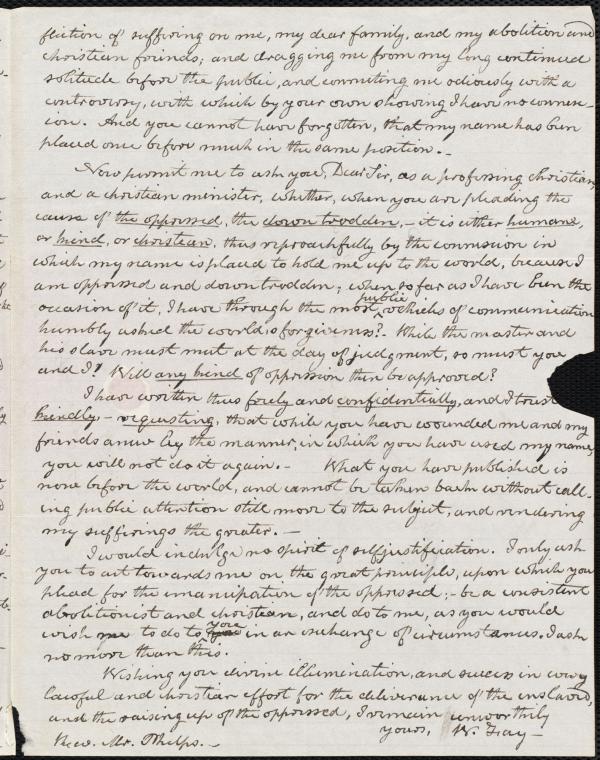 fliction of suffering on me, my dear family, and my abolition and
christian friends; and dragging me from my long continued
solitude before the public, and connecting me odiously with a
controversy, with which by your own showing I have no connex-
ion. And you cannot have forgotten, that my name has been
placed once before much in the same position.-
Now permit me to ask you, Dear Sir, as a professing christian,
and a christian minister, whether, when you are pleading the
cause of the oppressed, the down trodden,- it is either humane,
or kind, or christian, thus reproachfully by the connexion in
which my name is placed to hold me up to the world, because I
am oppressed and down trodden; when so far as I have been the
occasion of it, I have through the most public vehicles of communication
humbly asked the world's forgiveness?- While the master and
his slave must meet at the day of judgment, so must you
and I! Will any kind of oppression then be approved?
I have written thus freely and confidentially, and I trust
kindly - requesting, that while you have wounded me and my
friends anew by the manner, in which you have used my name,
you will not do it again.- What you have published is
now before the world, and cannot be taken back without call-
ing public attention still more to the subject, and rendering
my sufferings the greater.-
I would indulge no spirit of selfjustification. I only ask
you to act towards me on the great principle, upon which you
plead for the emancipation of the oppressed;- be a consistent
abolitionist and christian, and do to me, as you would
wish me to do to you in an exchange of circumstances. I ask
no more than this.
Wishing you divine illumination, and success in every
lawful and christian effort for the deliverance of the enslaved,
and the raising up of the oppressed, I remain unworthily
yours,
Rev. Mr. Phelps.-